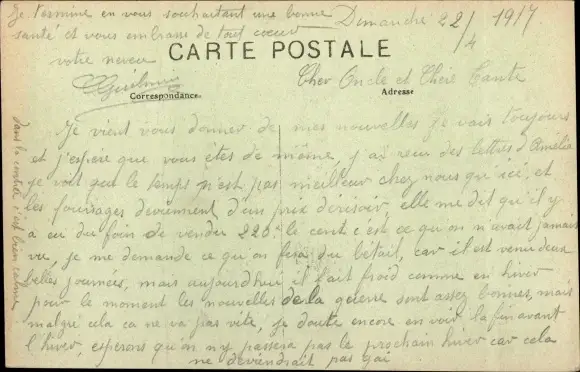 Je termine en vous souhaitant une bonne
santé et vous embrass de tout coeur
votre neveu
Dimanche 22/4 1917
CARTE POSTALE
Correspondance
Adresse
Cher Oncle et Chère Tante
Je vient vous donner de mes nouvelles je vais toujours
et j'espère que vous êtes de même, j'ai recu des lettres d'Amélia
je voit que le temps n'est pas meilleur chez nous qu'ici, et
les fourrages deviennent d'un prix dérisoir, elle me dit qu'il y
a eu du foin de vendu 226 le cent c'est ce qu'on n'avait jamais
vu, je me demande ce qu'on fera du bétail, car il est venu deux
belles journées, mais aujourd'hui il fait froid comme en hiver
pour le moment les nouvelles de la guerre sont assez bonnes, mais
malgré cela ca ne va pas vite, je doute encore en voir la fin avant
l'hiver, esperons qu'on n'y passera pas le prochain hiver car cela
ne deviendrait pas gai
dans le c'est bien calme